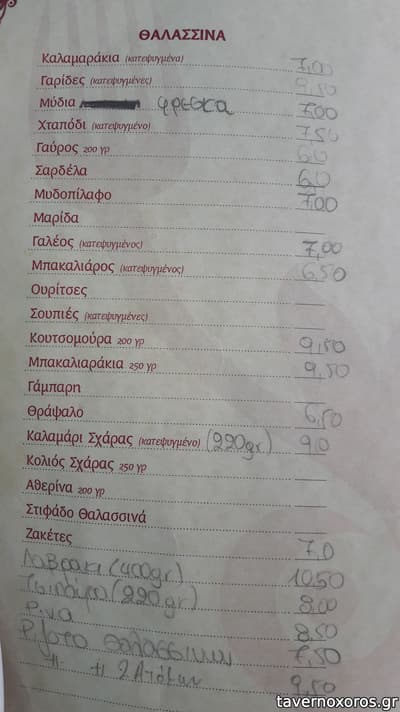 ΘΑΛΑΣΣΙΝΑ
Καλαμαράκια (κατεψυγμένα) 7,00
Γαρίδες (κατεψυγμένες) 9,50
Μύδια φρεσκα 7,00
Χταπόδι (κατεψυγμένο) 7,50
Γαύρος 200 γρ 6,0
Σαρδέλα 6,0
Μυδοπίλαφο 7,00
Μαρίδα
Γαλέος (κατεψυγμένος) 7,00
Μπακαλιάρος (κατεψυγμένος) 6,50
Ουρίτσες
Σουπιές (κατεψυγμένες)
Κουτσομούρα 200 γρ 9,50
Μπακαλιαράκια 250 γρ 9,50
Γάμπαρη
Θράψαλο 6,50
Καλαμάρι Σχάρας (κατεψυγμένο) (220gr) 9,0
Κολιός Σχάρας 250 γρ
Αθερίνα 200 γρ
Στιφάδο Θαλασσινά
Ζακέτες 7,0
Λαβρακι (400gr) 10,50
Τσιπουρα (220gr) 8,00
Ρινα 8,50
Ριζοτο θαλασσινων 7,50
〃 〃 2 Ατόμων 9,50
tavernoxoros.gr